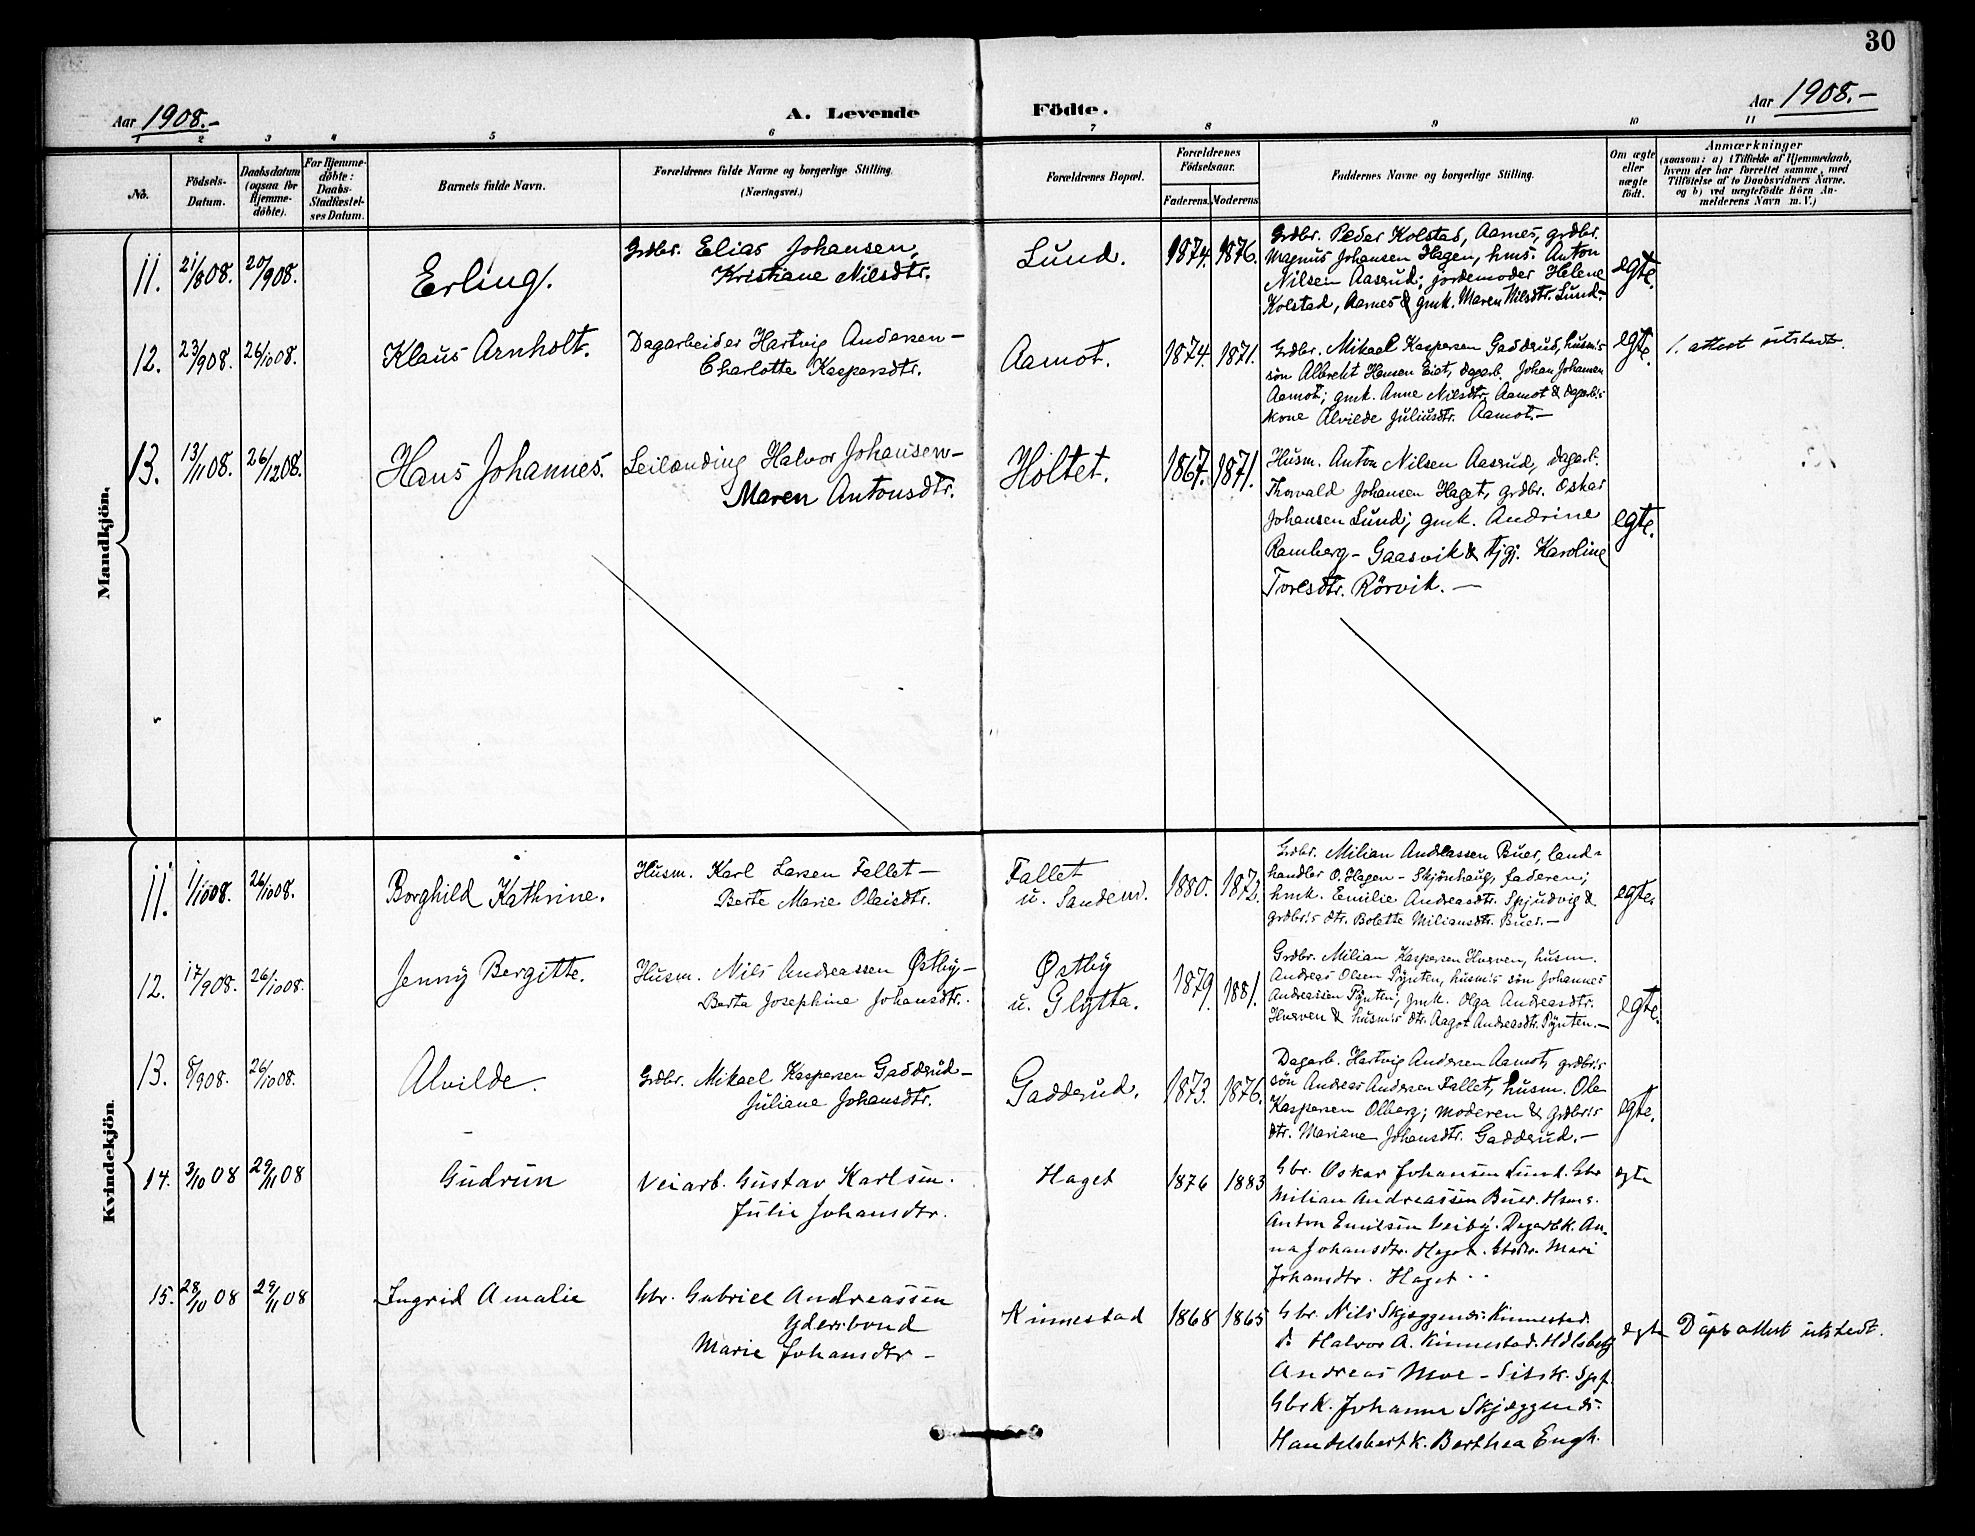 30
Aar 1908.-
A. Levende Fødte.
Aar 1908.-
1 2 3 4 5 6 7 8 9 10 11
No.
Födsels-Datum.
Daabsdatum (ogsaa for Hjemme-døbte).
For Hjemme-døbte: Daabs-Stadfæstel-ses Datum.
Barnets fulde Navn.
Forældrenes fulde Navne og borgerlige Stilling. (Næringsvei.)
Forældrenes Bopæl.
Forældrenes Födselsaar.
Faderens. Moderens.
Faddernes Navne og borgerlige Stilling.
Om ægte eller uægte født.
Anmærkninger
(saasom: a) i Tilfælde af Hjemmedaab,
hvem der har forrettet samme, med
Tilföielse af to Daabsvidners Navne,
og b) ved uægtefødte Börn An-
melderens Navn m. V.)
Mandkjön.
11. 21/8 08. 20/9 08. Erling. Grdbr. Elias Johansen,
Kristiane Nilsdtr.
Lund. 1874. 1876.
Grdbr. Peder Kolstad, Aarnes, grdbr.
Magnus Johansen Hagen, hms. Anton
Nilsen Aasrud; jordemoder Helene
Kolstad, Aarnes & gmk. Maren Nilsdtr. Lund.-
egte.
12. 23/9 08. 26/10 08. Klaus Arnholt. Dagarbeider Hartvig Andersen -
Charlotte Kaspersdtr.
Aamot. 1874. 1871.
Grdbr. Mikael Kaspersen Gadderud, husm's
søn Albrekt Hansen Eiet, dagarb. Johan Johansen
Aamot; gmk. Anne Nilsdtr. Aamot & dagarb's
kone Alvilde Juliusdtr. Aamot.-
egte. 1. attest utstedt.
13. 13/11 08. 26/12 08. Hans Johannes. Leilending Halvor Johansen -
Maren Antonsdtr.
Holtet. 1867. 1871.
Husm. Anton Nilsen Aasrud, dagarb.
Thorvald Johansen Haget, grdbr. Oskar
Johansen Lund; gmk. Andrine
Ramberg - Gaasvik & tjgj. Karoline
Toresdtr. Rörvik. -
egte.
Kvindekjön.
11. 1/10 08. 26/10 08. Borghild Kathrine. Husm. Karl Larsen Fallet -
Berte Marie Olaisdtr.
Fallet
u. Sandem. 1880. 1872.
Grdbr. Milian Andreassen Buer, land-
handler O. Hagen - Skjønhaug, faderen;
hmk. Emilie Andreasdtr. Spjudvig &
grdbr's dtr. Bolette Miliansdtr. Buer.-
egte.
12. 17/9 08. 26/10 08. Jenny Bergitte. Husm. Nils Andreassen Østby -
Berta Josephine Johansdtr.
Østby
u. Glytta. 1879. 1881.
Grdbr. Milian Kaspersen Hurven, husm.
Andreas Olsen Pynten, husm's søn Johannes
Andreassen Pynten; gmk. Olga Andreasdtr.
Hurven & husm's dtr. Aagot Andreasdtr. Pynten.-
egte.
13. 8/9 08. 26/10 08. Alvilde. Grdbr. Mikael Kaspersen Gadderud -
Juliane Johansdtr.
Gadderud. 1873. 1876.
Dagarb. Hartvig Andersen Aamot, grdbr's
søn Andreas Andersen Fallet, husm. Ole
Kaspersen Olberg; moderen & grdbr's
dtr. Mariane Johansdtr. Gadderud.-
egte.
14. 3/10 08 29/11 08 Gudrun Veiarb. Gustav Karlsen.
Julie Johansdtr.
Haget 1876 1883
Gbr. Oskar Johansen Lund. Gbr
Milian Andreassen Buer. Hsmg.
Anton Emilsen Veiby. Dagarbk. An-
na Johansdtr. Haget. Gbdtr. Mari
Johansdtr. Haget
egte
15. 28/10 08 29/11 08 Ingrid Amalie Gbr. Gabriel Andreassen
Ydersbond
Marie Johansdtr -
Kinnestad 1868 1865
Gbr. Nils Skjæggenes Kinnestad.
d. Halvor A. Kinnestad. Hdlsbest
Andreas Moe - Sitsk. Spf.
Gbrk. Johanne Skjæggenes.
Handelsbestk. Berthea Engh.
egte Dåpsattest utstedt.